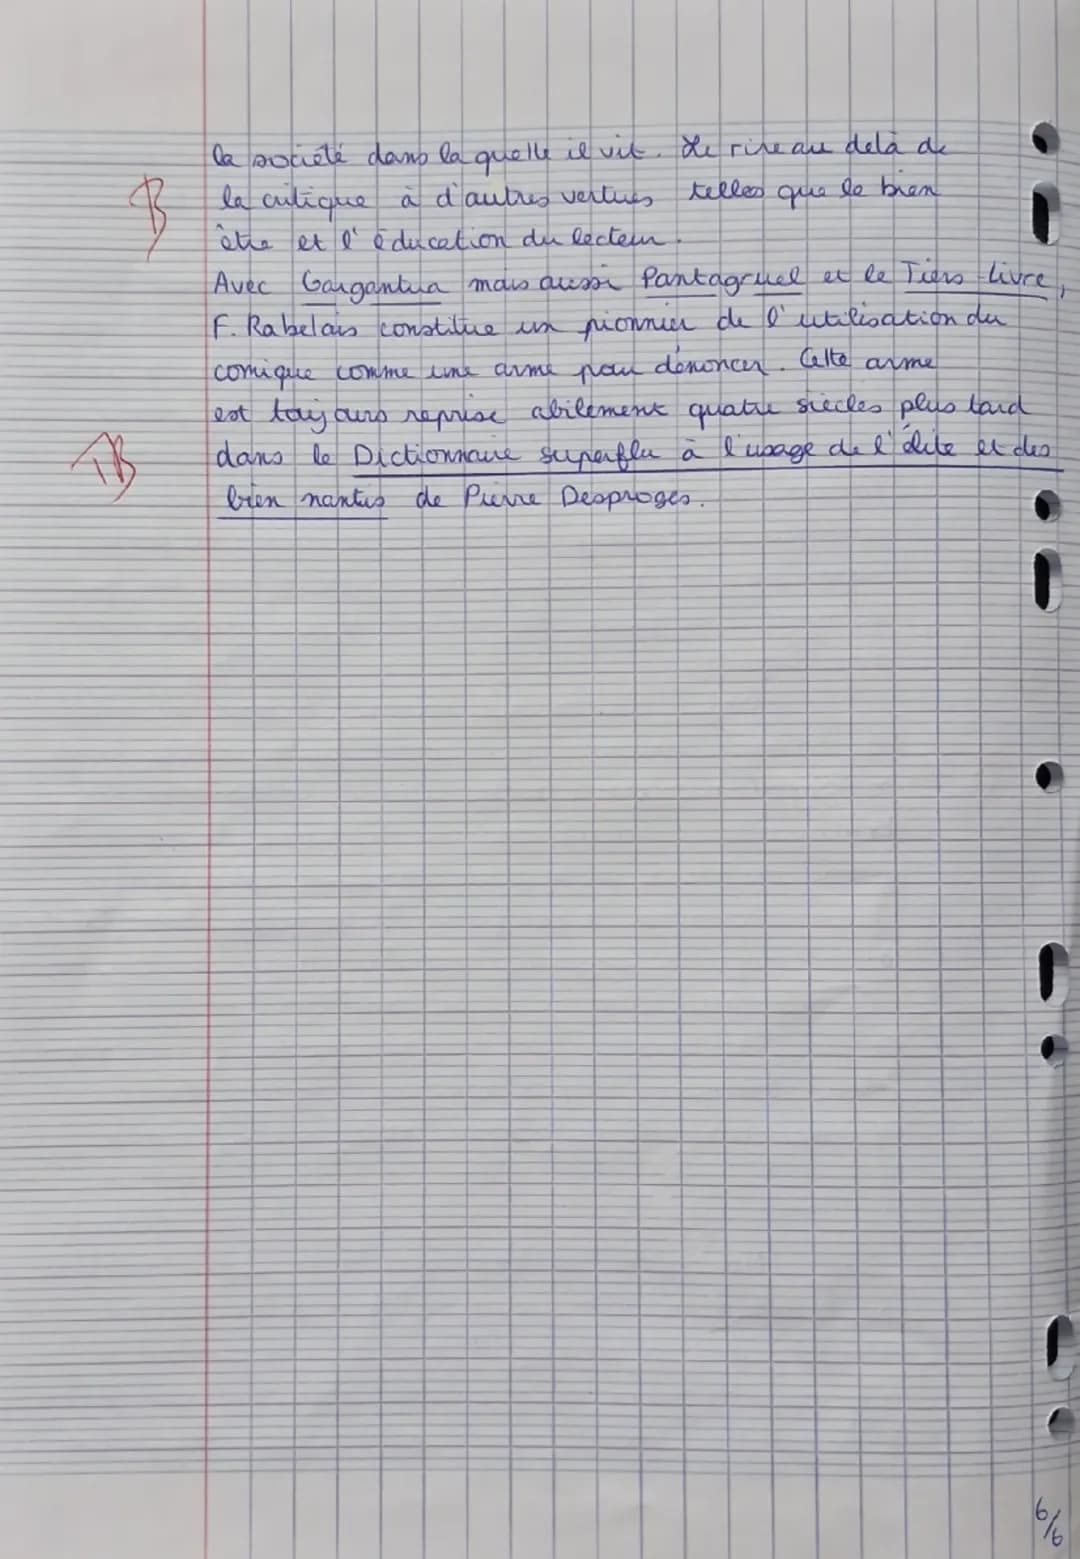 la société dans la quelle il vit. Le rire au delà de
B
la critique à d'autres vertues telles que le bien
être et l'éducation du lecteur.
Avec Gargantua mais aussi Pantagruel et le Tiers Livre,
F. Rabelais constitue un pionnier de l'utilisation du
comique comme une arme pour dénoncer. Cette arme
est toujours reprise abilement quatre siècles plus tard
TB
dans le Dictionnaire superflu à l'usage de l'élite et des
bien nantis de Pierre Desproges.
6/6